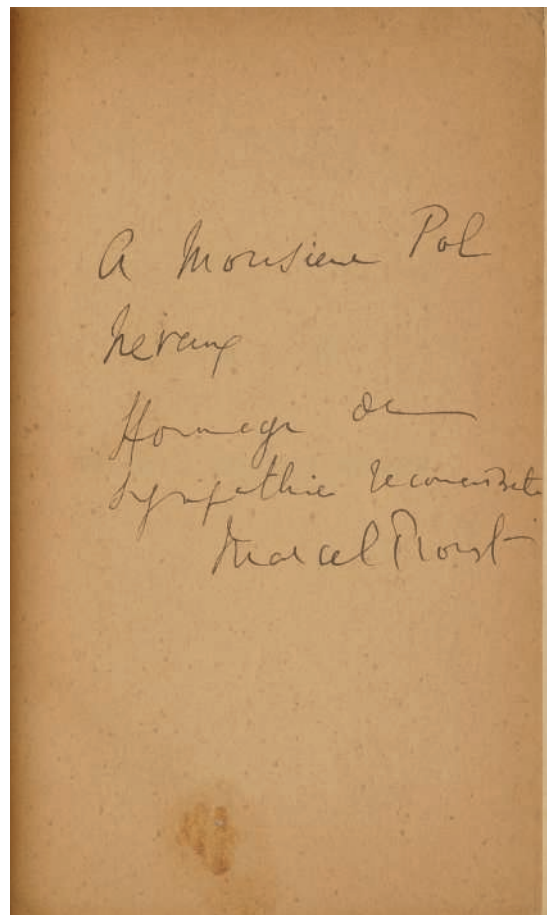 A Monsieur Pol
Neveux
Hommage de
sympathie reconnaissante
Marcel Proust